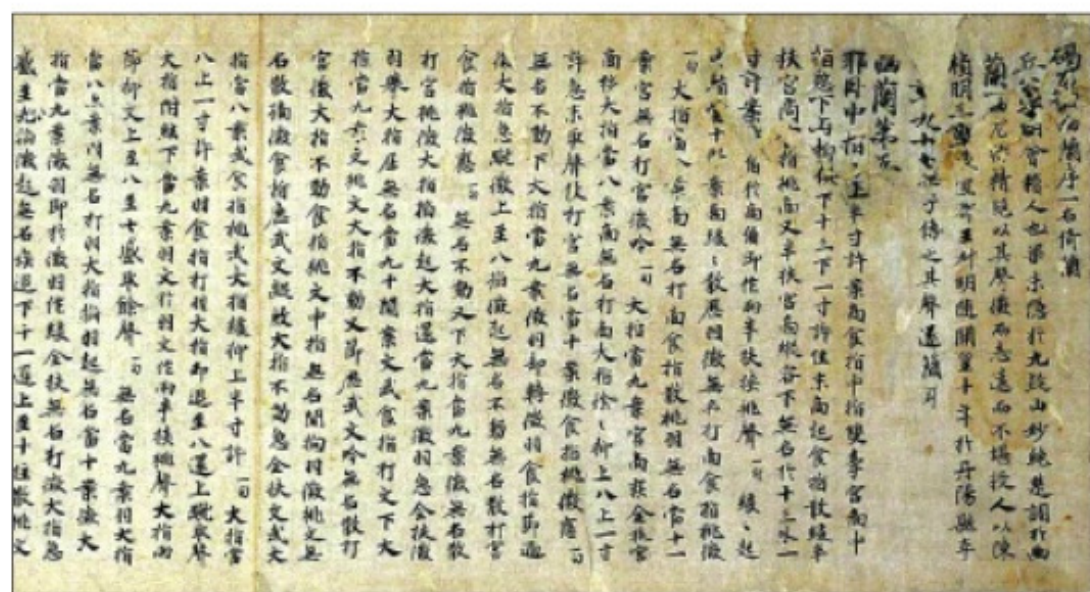 碣石調幽蘭序一名倚蘭
丘公字明會稽人也梁末隱於九疑山妙絕楚調於幽
蘭一曲尤特精絕以其聲微而志遠而不堪授人以陳
禎明三年授宜王叔明隨開皇十年於丹陽縣卒
年九十七無子傳之其聲遂簡耳
幽蘭第五
耶臥中指十上半寸許案商食指中指雙牽宮商中
指急下与拘俱下十三下一寸許住末商起食指散緩半
扶宮商食指挑商又半扶宮商縱容下無名於十三外一
寸許案商角於商角即作兩半扶挾挑聲一句緩緩起
無名食十外案商緩緩散歷羽徵無名打商食指挑徵
一句大指當八案商無名打商食指散挑羽無名當十一
案宮無名打宮徵吟一句大指當九案宮商疾全扶宮
商移大指當八案商無名打商大指徐徐抑上八上一寸
許急末取聲散打宮無名當十案徵食指挑徵應一句
無名不動下大指當九案徵羽卻轉徵羽食指節過
徐大指急蹴徵上至八掐徵起無名不動無名散打宮
食指挑徵應一句無名不動又下大指當九案徵無名散
打宮挑徵大指掐徵起大指還當九案徵羽急全扶徵
羽舉大指屈無名當九十間案文武食指打文下大
指當九案文挑文大指不動又節歷武文吟無名散打
宮徵大指不動食指挑文中指無名間拘羽徵挑文無
名散摘徵食指應武文蹴大指不動急全扶文武大
指當八案武食指挑武大指緩抑上半寸許一句大指當
八上一寸許案羽食指打指大指却退至八還上蹴取聲
大指附絃下當九案羽文於羽文作兩半扶挑聲大指兩
節抑文上至八至七盡取餘聲一句無名當九案羽大指
當八上案羽無名打羽大指掐羽起無名當十案徵大
指當九案徵羽即於徵羽作緩全扶無名打徵大指急
蹴至九掐徵起無名疾退下十一還上至十住散挑文